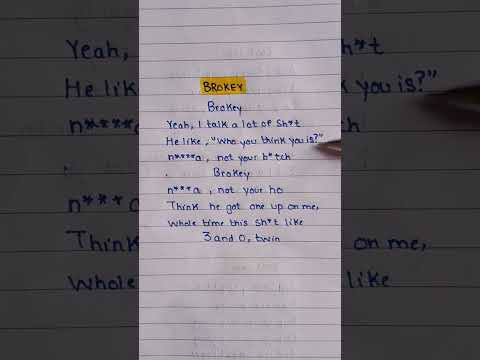 BROKEY
Brokey
Yeah, I talk a lot of sh*t
He like, "Who you think you is?"
n****a, not your b*tch
Brokey
n***a, not your ho
Think he got one up on me,
Whole time this sh*t like
3 and 0, twin
Yeah,
He like
n****a
n***a
Think
Whole
h*t
k you is?"
on me,
like